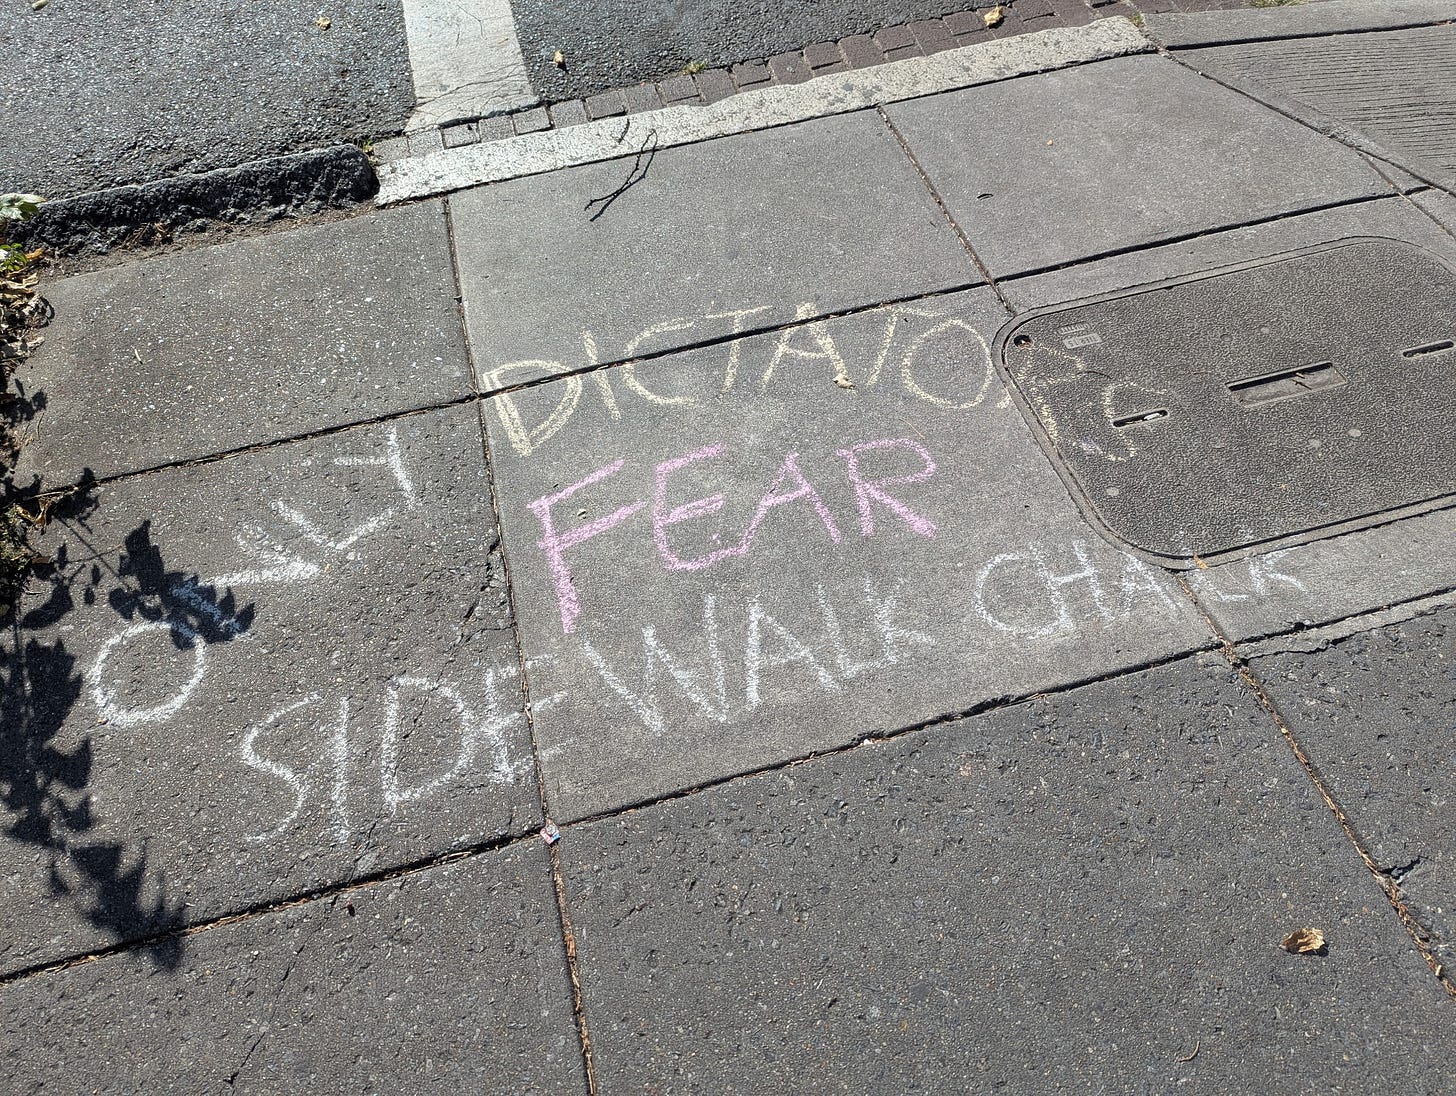 ONLY
DICTATORS
FEAR
SIDEWALK CHALK